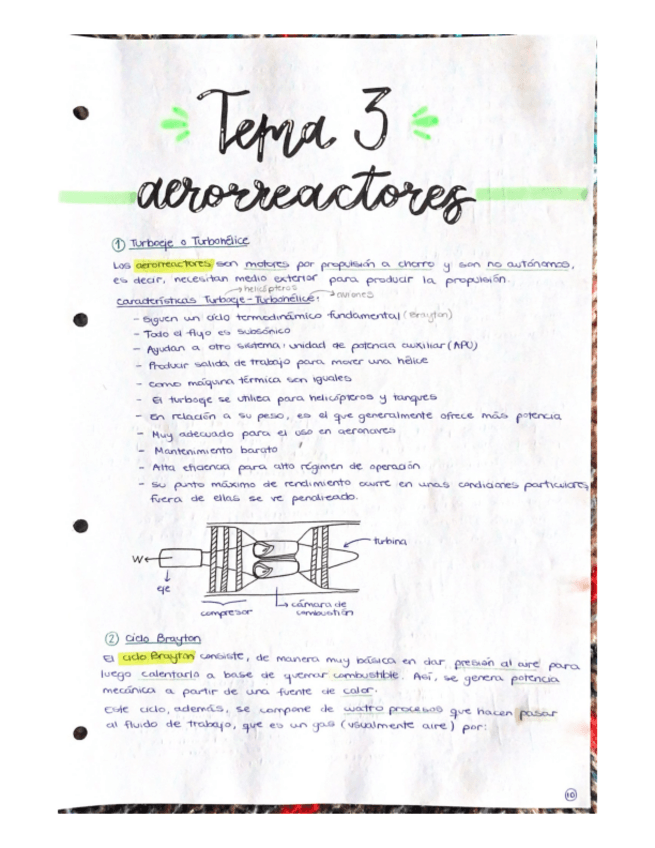 Tema 3
aerorreactores
① Turboeje o Turbohélice
Los aerorreactores son motores por propulsión a chorro y son no autónomos,
es decir, necesitan medio exterior para producir la propulsión.
helicópteros
aviones
características Turboeje-Turbohélice:
- Siguen un ciclo termodinámico fundamental (Brayton)
- Todo el flujo es subsónico
- Ayudan a otro sistema: unidad de potencia auxiliar (APU)
- Producir salida de trabajo para mover una hélice
- como máquina térmica son iguales
- El turboeje se utiliza para helicópteros y tanques
- En relación a su peso, es el que generalmente ofrece más potencia
- Muy adecuado para el uso en aeronaves
- Mantenimiento barato
- Alta eficiencia para alto régimen de operación
- Su punto máximo de rendimiento ocurre en unas condiciones particulares,
fuera de ellas se ve penalizado.
turbina
W
eje
compresor
cámara de
combustión
② Ciclo Brayton
El ciclo Brayton consiste, de manera muy básica en dar presión al aire para
luego calentarlo a base de quemar combustible. Así, se genera potencia
mecánica a partir de una fuente de calor.
Este ciclo, además, se compone de cuatro procesos que hacen pasar
al fluido de trabajo, que es un gas (usualmente aire) por:
10